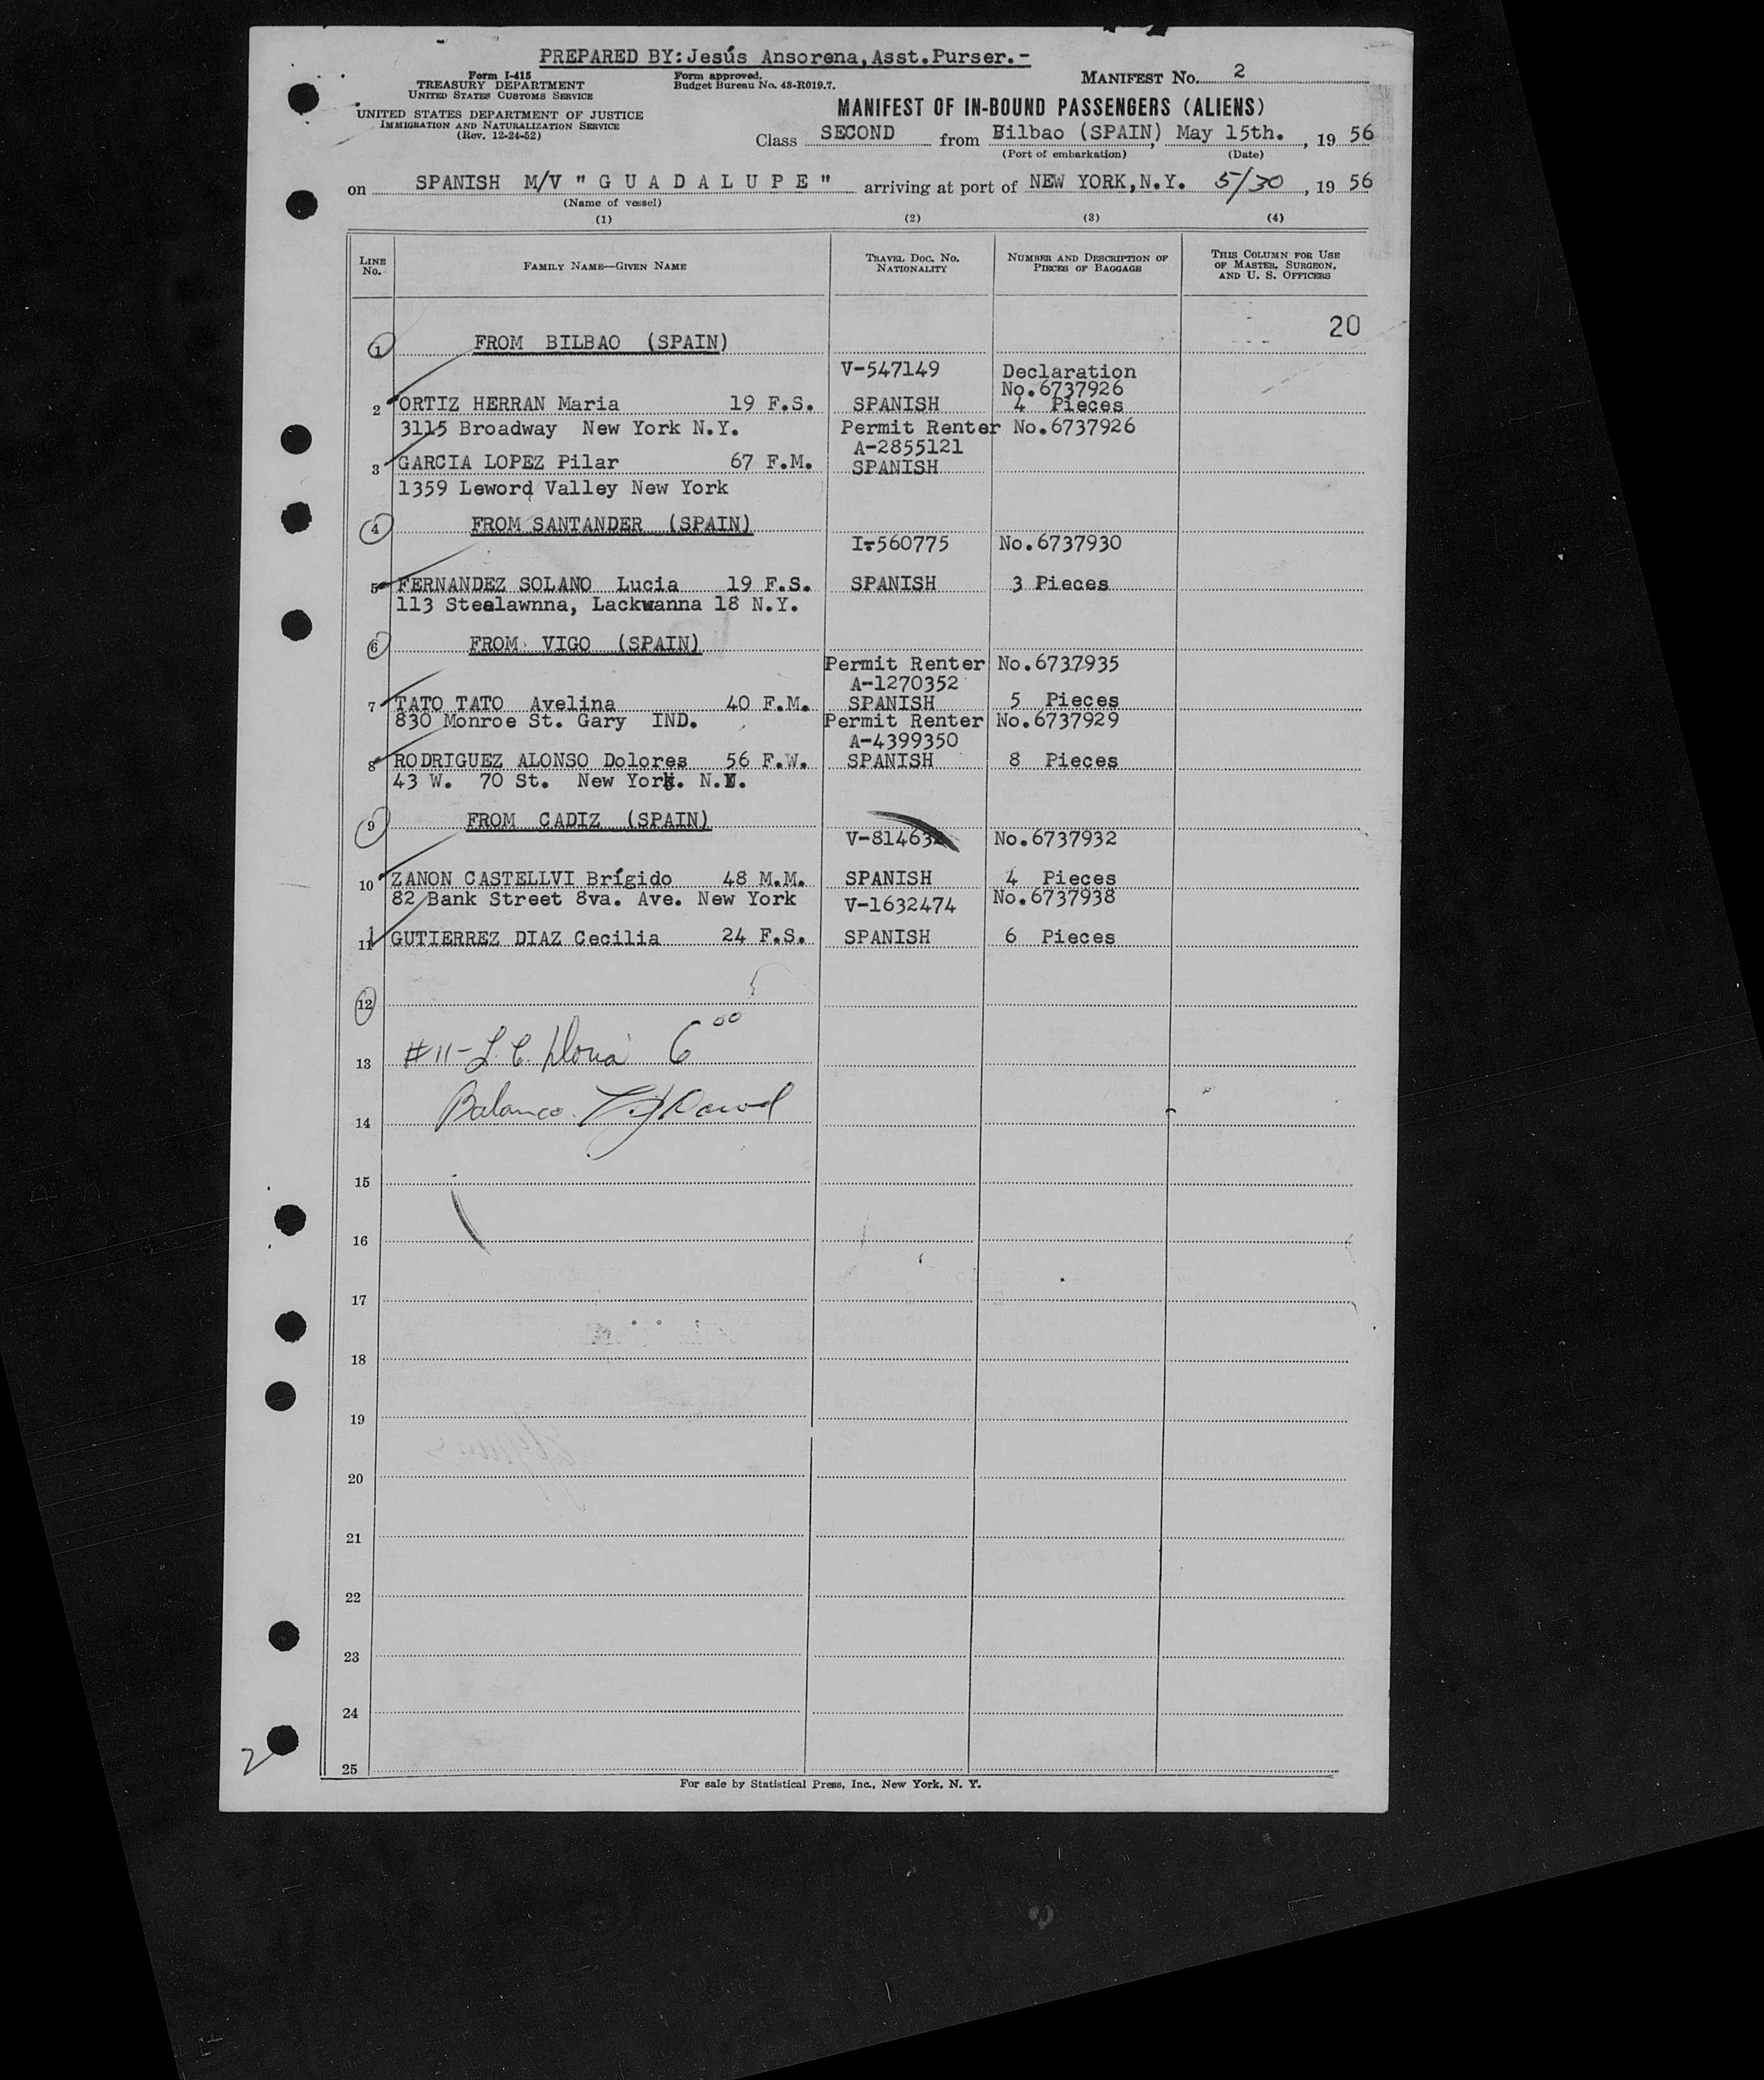 PREPARED BY: Jesús Ansorena, Asst. Purser.-
Form I-415
TREASURY DEPARTMENT
UNITED STATES CUSTOMS SERVICE
Form approved.
Budget Bureau No. 43-R019.7.
MANIFEST No. 2
UNITED STATES DEPARTMENT OF JUSTICE
IMMIGRATION AND NATURALIZATION SERVICE
(Rev. 12-24-52)
MANIFEST OF IN-BOUND PASSENGERS (ALIENS)
Class SECOND from Bilbao (SPAIN), May 15th., 19 56
(Port of embarkation) (Date)
on SPANISH M/V " G U A D A L U P E " arriving at port of NEW YORK, N.Y. 5/30, 19 56
(Name of vessel)
(1) (2) (3) (4)
LINE No. FAMILY NAME—GIVEN NAME TRAVEL DOC. NO. NATIONALITY NUMBER AND DESCRIPTION OF PIECES OF BAGGAGE THIS COLUMN FOR USE OF MASTER, SURGEON, AND U. S. OFFICERS
20
1 FROM BILBAO (SPAIN)
V-547149 Declaration
No.6737926
2 ORTIZ HERRAN Maria 19 F.S. SPANISH 4 Pieces
3115 Broadway New York N.Y. Permit Renter No.6737926
A-2855121
3 GARCIA LOPEZ Pilar 67 F.M. SPANISH
1359 Leword Valley New York
4 FROM SANTANDER (SPAIN)
I-560775 No.6737930
5 FERNANDEZ SOLANO Lucia 19 F.S. SPANISH 3 Pieces
113 Steelawnna, Lackwanna 18 N.Y.
6 FROM VIGO (SPAIN)
Permit Renter No.6737935
A-1270352
7 TATO TATO Avelina 40 F.M. SPANISH 5 Pieces
830 Monroe St. Gary IND. Permit Renter No.6737929
A-4399350
8 RODRIGUEZ ALONSO Dolores 56 F.W. SPANISH 8 Pieces
43 W. 70 St. New York. N.Y.
9 FROM CADIZ (SPAIN)
No.6737932
10 ZANON CASTELLVI Brígido 48 M.M. SPANISH 4 Pieces
82 Bank Street 8va. Ave. New York V-1632474 No.6737938
11 GUTIERREZ DIAZ Cecilia 24 F.S. SPANISH 6 Pieces
12
13 #11- 6 00
14 Balance
15
16
17
18
19
20
21
22
23
24
25
2
For sale by Statistical Press, Inc., New York, N. Y.